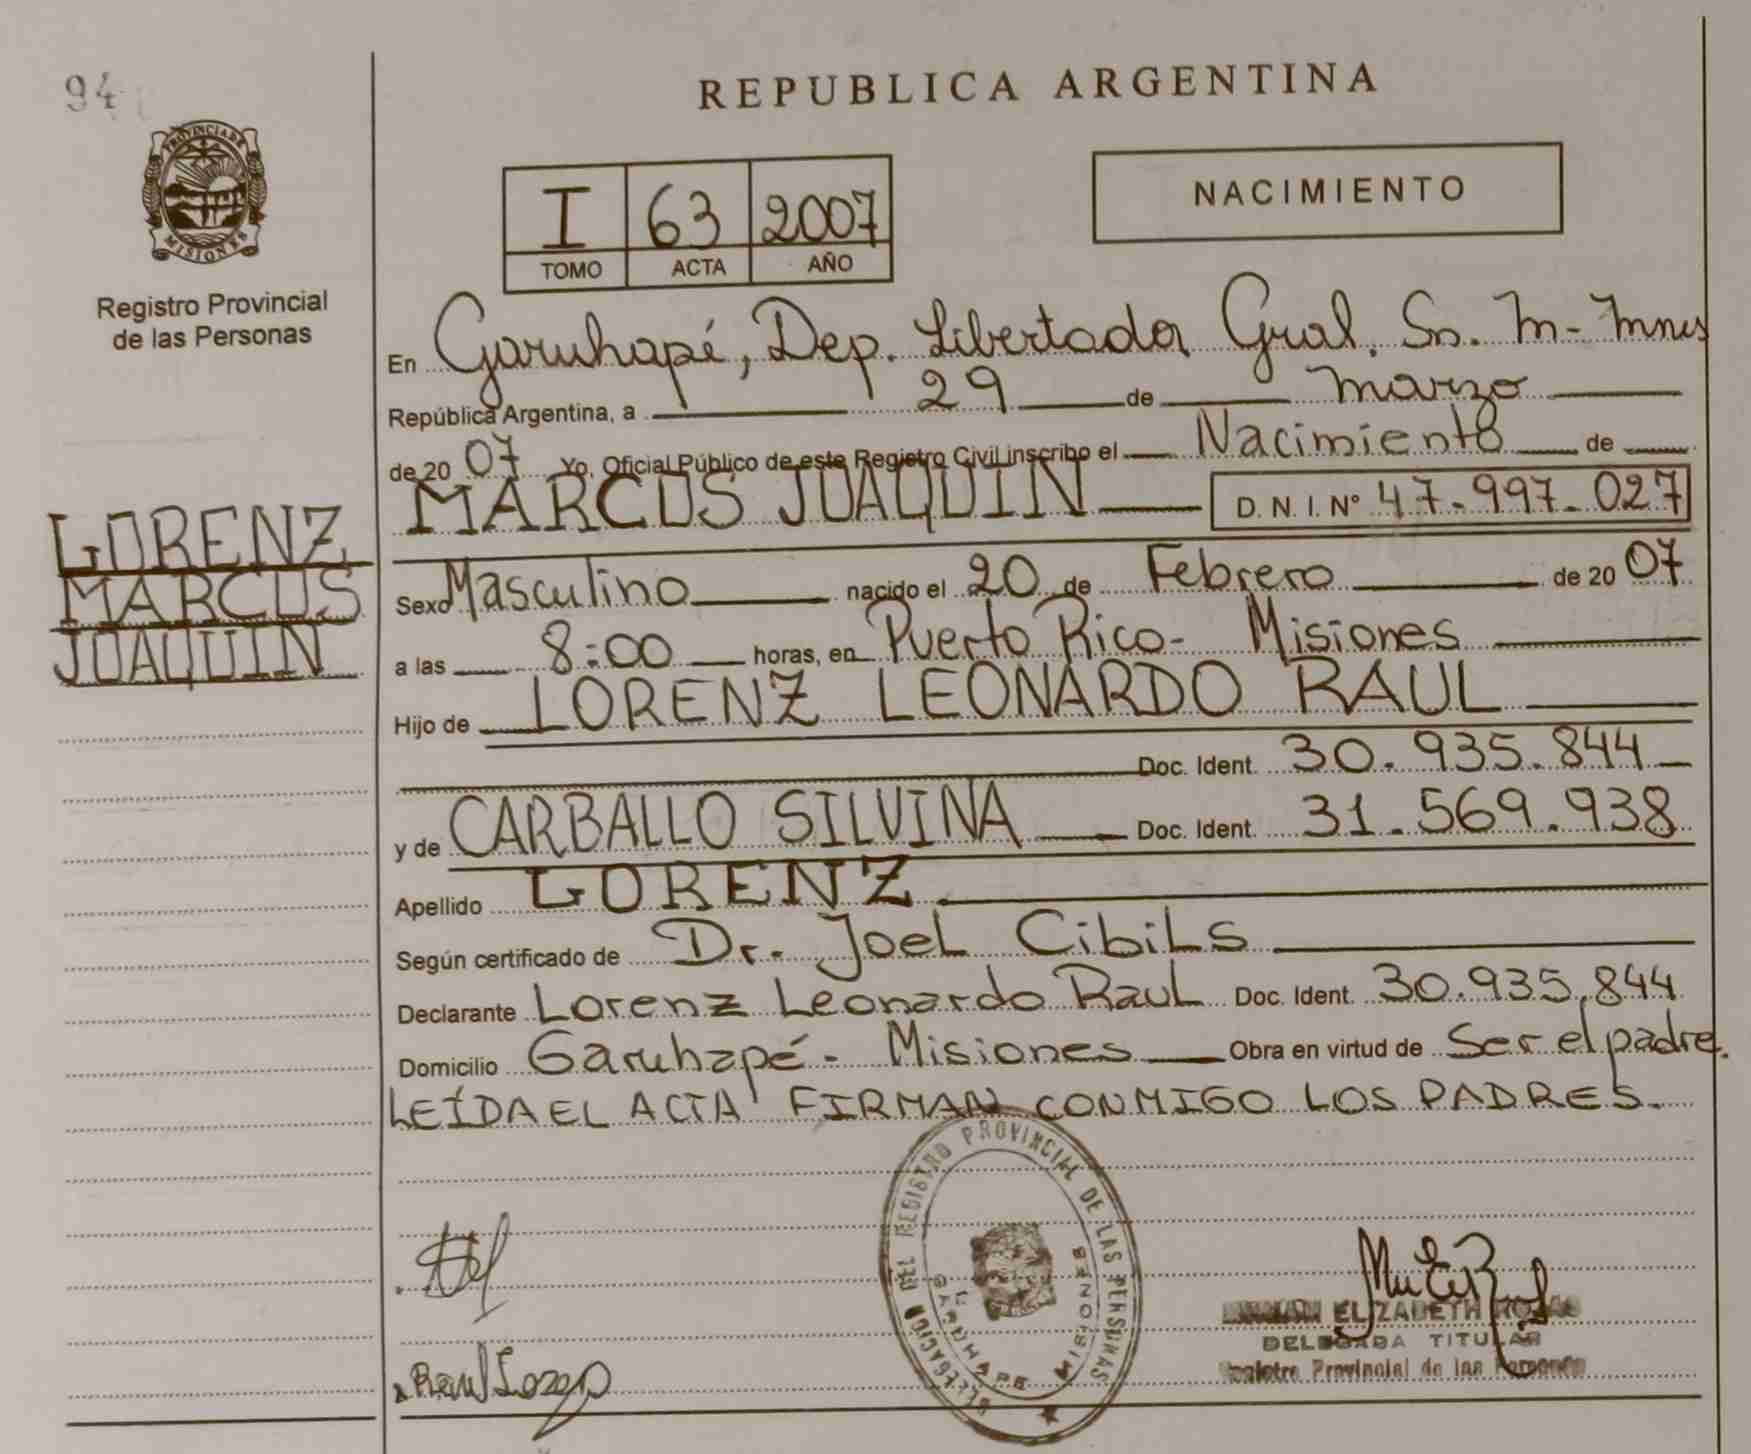 94
REPUBLICA ARGENTINA
PROVINCIA DE
MISIONES
Registro Provincial
de las Personas
I 63 2007
TOMO ACTA AÑO
NACIMIENTO
En Garuhapé, Dep. Libertador Gral. Sn. M- Mnes
República Argentina, a 29 de marzo
de 20 07 Yo, Oficial Público de este Registro Civil inscribo el Nacimiento de
MARCUS JOAQUIN D. N. I. Nº 47.997.027
LORENZ
MARCUS
JOAQUIN
Sexo Masculino nacido el 20 de Febrero de 20 07
a las 8:00 horas, en Puerto Rico- Misiones
Hijo de LORENZ LEONARDO RAUL
Doc. Ident. 30.935.844
y de CARBALLO SILVINA Doc. Ident. 31.569.938
Apellido LORENZ
Según certificado de Dr. Joel Cibils
Declarante Lorenz Leonardo Raul Doc. Ident. 30.935.844
Domicilio Garuhapé- Misiones Obra en virtud de Ser el padre.
LEÍDA EL ACTA FIRMAN CONMIGO LOS PADRES.
DELEGACION DEL REGISTRO PROVINCIAL DE LAS PERSONAS
GARUHAPE
MISIONES
ELIZABETH
DELEGADA TITULAR
Registro Provincial de las Personas